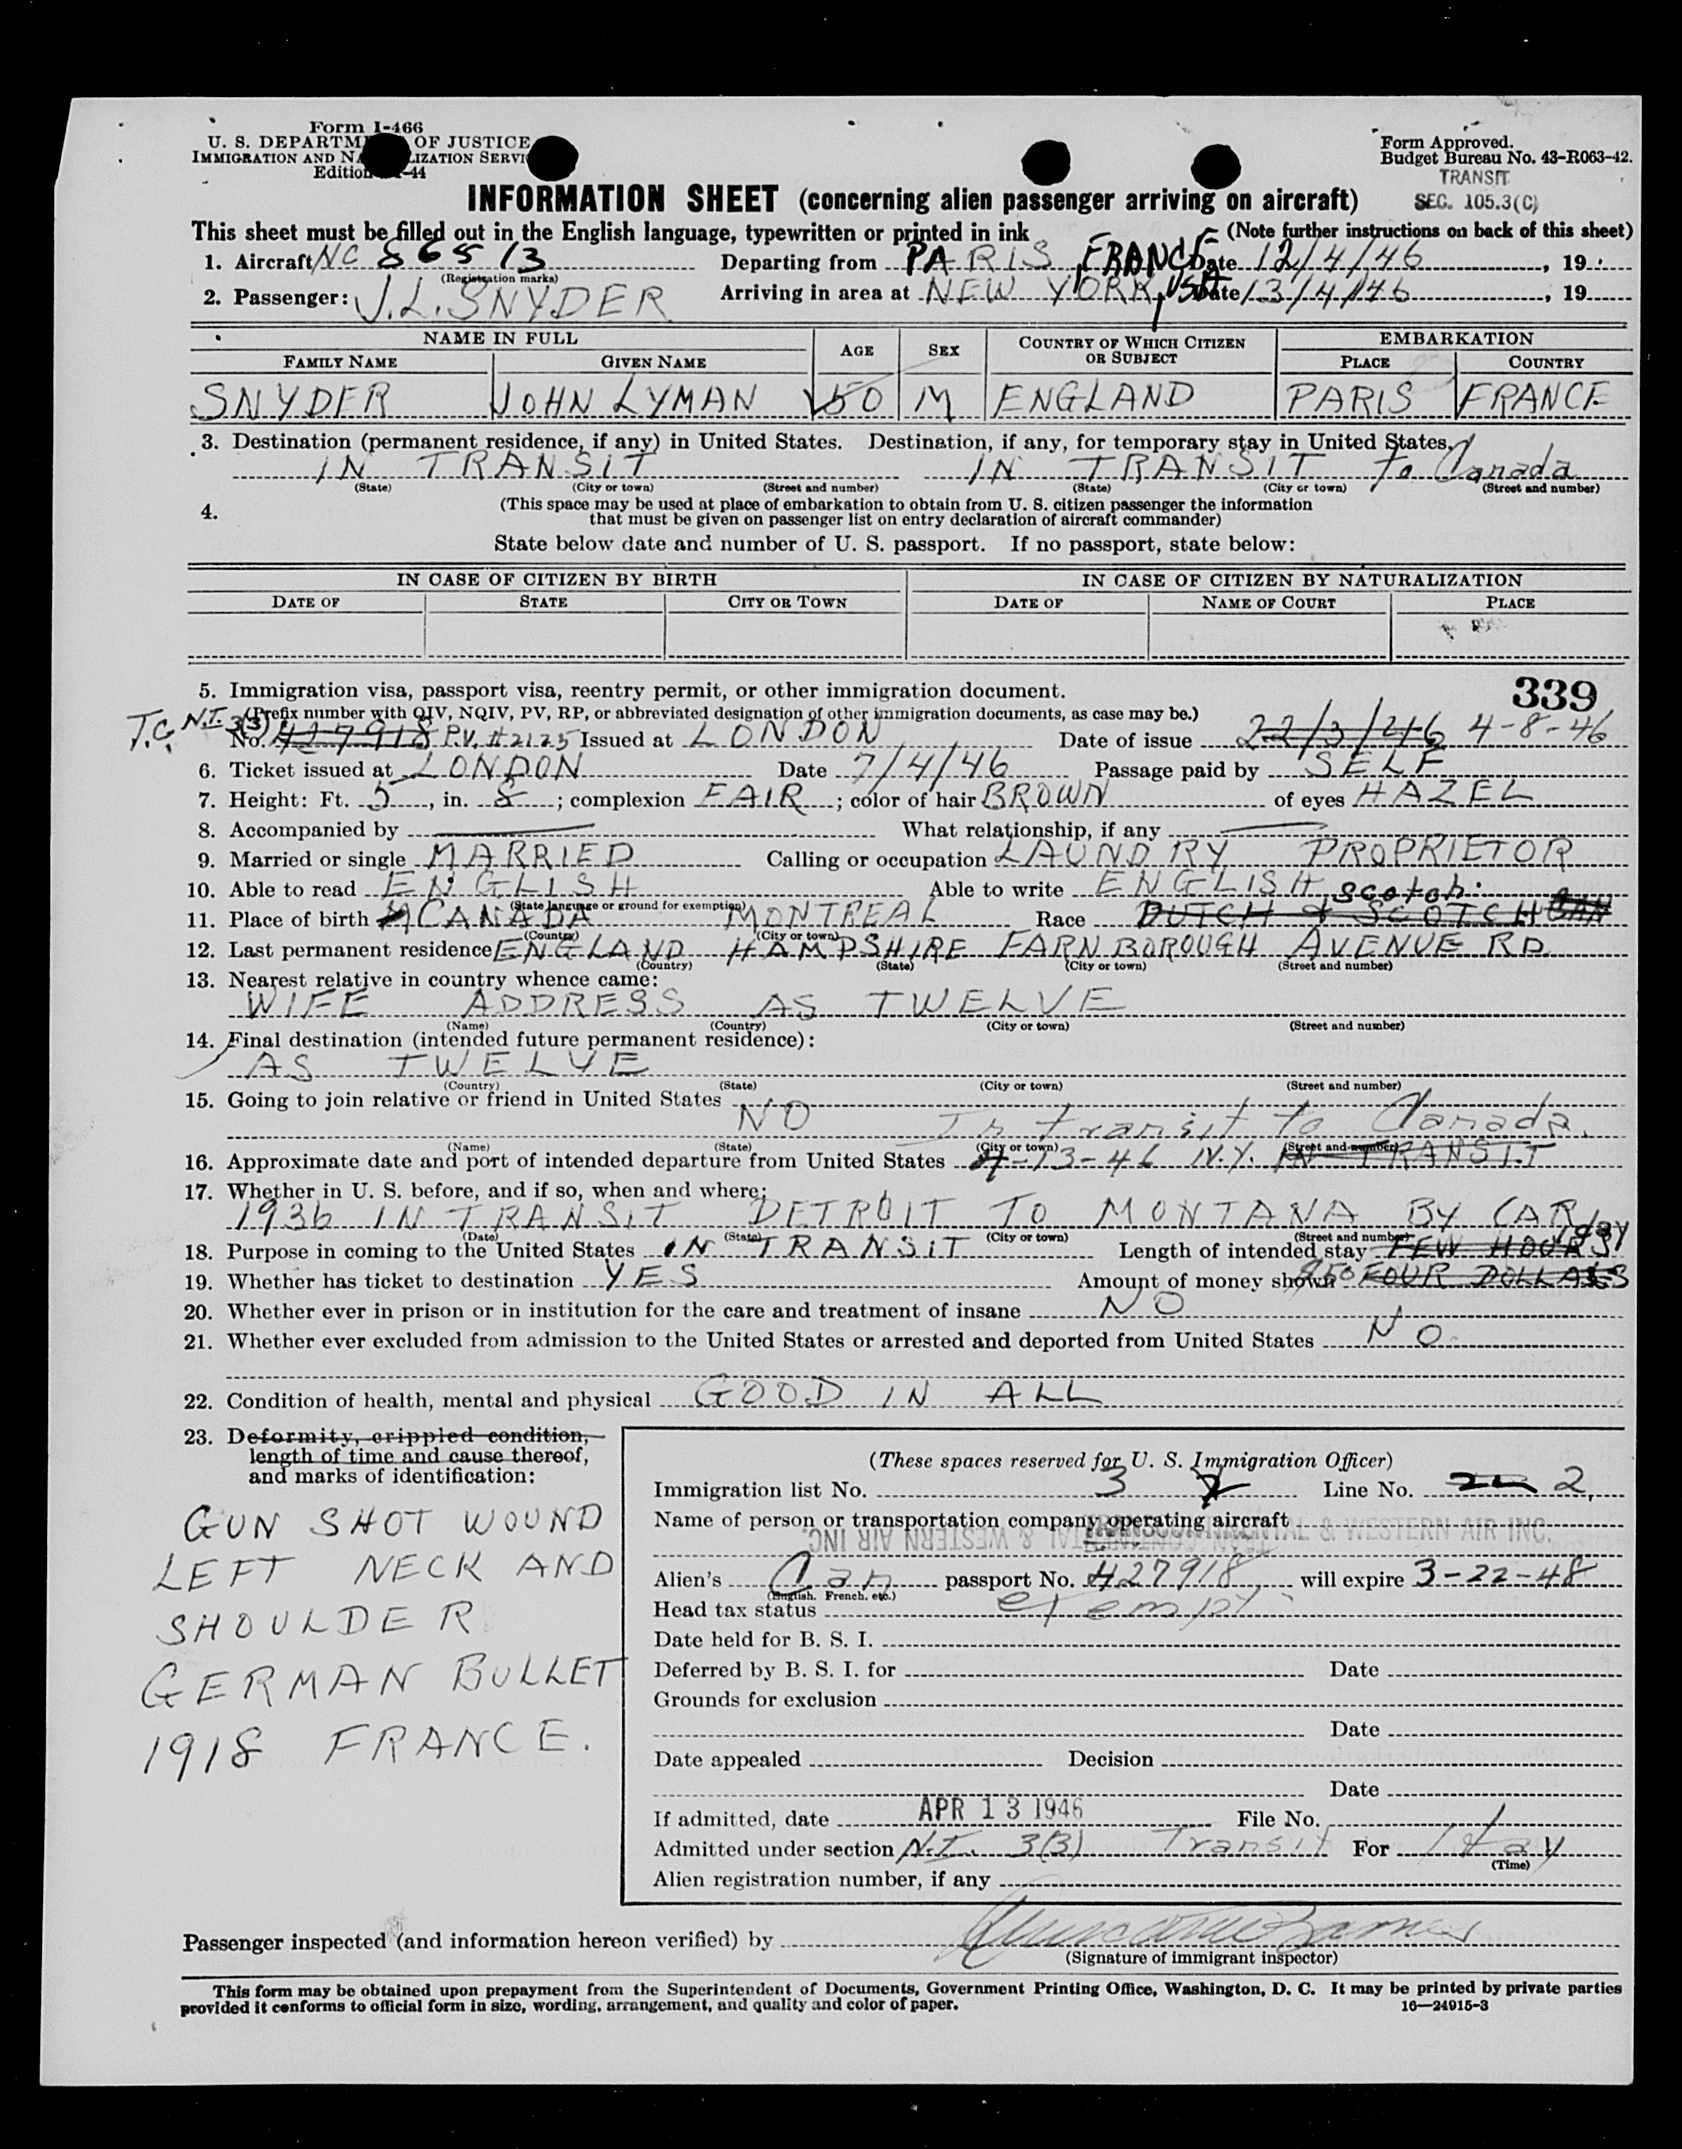 Form I-466
U. S. DEPARTM OF JUSTICE
IMMIGRATION AND NA LIZATION SERVI
Edition -44
Form Approved.
Budget Bureau No. 43-R063-42.
TRANSIT
SEC. 105.3(C)
INFORMATION SHEET (concerning alien passenger arriving on aircraft)
This sheet must be filled out in the English language, typewritten or printed in ink (Note further instructions on back of this sheet)
1. Aircraft NC 86513 Departing from PARIS, FRANCE Date 12/4/46, 19
(Registration marks)
2. Passenger: J. L. SNYDER Arriving in area at NEW YORK, USA Date 13/4/46, 19
NAME IN FULL AGE SEX COUNTRY OF WHICH CITIZEN OR SUBJECT EMBARKATION
FAMILY NAME GIVEN NAME PLACE COUNTRY
SNYDER JOHN LYMAN 50 M ENGLAND PARIS FRANCE
3. Destination (permanent residence, if any) in United States. Destination, if any, for temporary stay in United States.
IN TRANSIT IN TRANSIT to Canada
(State) (City or town) (Street and number) (State) (City or town) (Street and number)
4. (This space may be used at place of embarkation to obtain from U. S. citizen passenger the information
that must be given on passenger list on entry declaration of aircraft commander)
State below date and number of U. S. passport. If no passport, state below:
IN CASE OF CITIZEN BY BIRTH IN CASE OF CITIZEN BY NATURALIZATION
DATE OF STATE CITY OR TOWN DATE OF NAME OF COURT PLACE
339
5. Immigration visa, passport visa, reentry permit, or other immigration document.
(Prefix number with QIV, NQIV, PV, RP, or abbreviated designation of other immigration documents, as case may be.)
T.C. N.I. 3(3)
No. 427918 P.V. #2125 Issued at LONDON Date of issue 22/3/46 4-8-46
6. Ticket issued at LONDON Date 7/4/46 Passage paid by SELF
7. Height: Ft. 5, in. 8; complexion FAIR; color of hair BROWN of eyes HAZEL
8. Accompanied by What relationship, if any
9. Married or single MARRIED Calling or occupation LAUNDRY PROPRIETOR
10. Able to read ENGLISH Able to write ENGLISH
(State language or ground for exemption)
11. Place of birth CANADA MONTREAL Race DUTCH & SCOTCH Scotch.
(Country) (City or town)
12. Last permanent residence ENGLAND HAMPSHIRE FARNBOROUGH AVENUE RD.
(Country) (State) (City or town) (Street and number)
13. Nearest relative in country whence came:
WIFE ADDRESS AS TWELVE
(Name) (Country) (City or town) (Street and number)
14. Final destination (intended future permanent residence):
AS TWELVE
(Country) (State) (City or town) (Street and number)
15. Going to join relative or friend in United States NO
In transit to Canada.
(Name) (State) (City or town) (Street and number)
16. Approximate date and port of intended departure from United States 4-13-46 N.Y. IN TRANSIT
17. Whether in U. S. before, and if so, when and where:
1936 IN TRANSIT DETROIT TO MONTANA BY CAR
(Date) (State) (City or town) (Street and number)
18. Purpose in coming to the United States IN TRANSIT Length of intended stay FEW HOURS 1 day
19. Whether has ticket to destination YES Amount of money shown FOUR DOLLARS
20. Whether ever in prison or in institution for the care and treatment of insane NO
21. Whether ever excluded from admission to the United States or arrested and deported from United States NO
22. Condition of health, mental and physical GOOD IN ALL
23. Deformity, crippled condition,
length of time and cause thereof,
and marks of identification:
GUN SHOT WOUND
LEFT NECK AND
SHOULDER
GERMAN BULLET
1918 FRANCE.
(These spaces reserved for U. S. Immigration Officer)
Immigration list No. 3 Line No. 2
Name of person or transportation company operating aircraft
& WESTERN AIR INC.
& WESTERN AIR INC.
Alien's Can passport No. 427918, will expire 3-22-48
(English, French, etc.)
Head tax status exempt
Date held for B. S. I.
Deferred by B. S. I. for Date
Grounds for exclusion
Date
Date appealed Decision
Date
If admitted, date APR 13 1946 File No.
Admitted under section N.I. 3(3) Transit For 1 day
(Time)
Alien registration number, if any
Passenger inspected (and information hereon verified) by
(Signature of immigrant inspector)
This form may be obtained upon prepayment from the Superintendent of Documents, Government Printing Office, Washington, D. C. It may be printed by private parties
provided it conforms to official form in size, wording, arrangement, and quality and color of paper. 16—24915-3